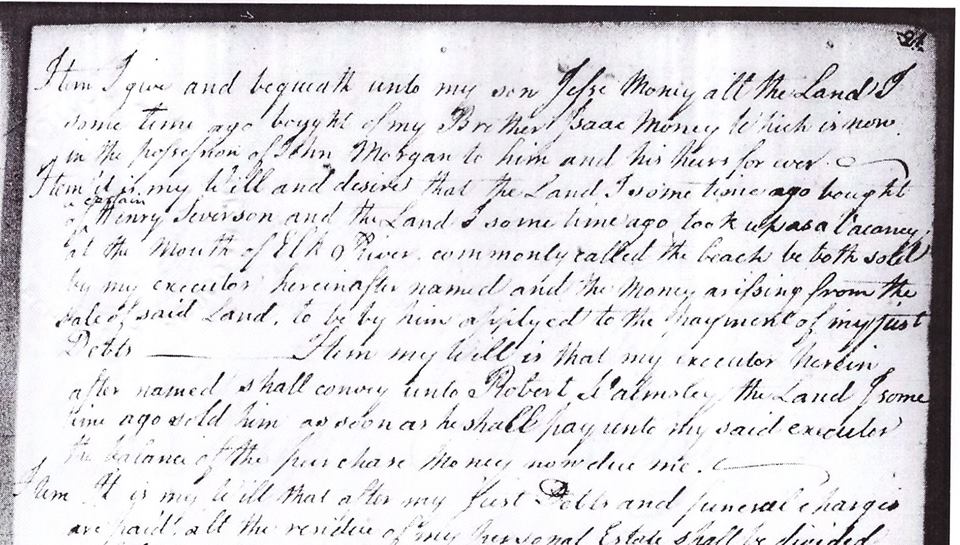 Item I give and bequeath unto my son Jesse Money all the Land I
some time ago bought of my Brother Isaac Money Which is now
in the possession of John Morgan to him and his heirs for ever.
Item it is my Will and desire that the Land I some time ago bought
a certain
of Henry Severson and the Land I some time ago took up as a Vacancy,
at the Mouth of Elk River commonly called the beach be both sold
by my executor hereinafter named and the Money arissing from the
sale of said Land, to be by him applyed to the payment of my just
Debts Item my Will is that my executor herein
after named shall convey unto Robert Walmsley the Land I some
time ago sold him as soon as he shall pay unto my said executor
the balance of the purchase Money now due me.
Item It is my Will that after my just Debts and funeral charges
are paid all the residue of my personal Estate shall be divided